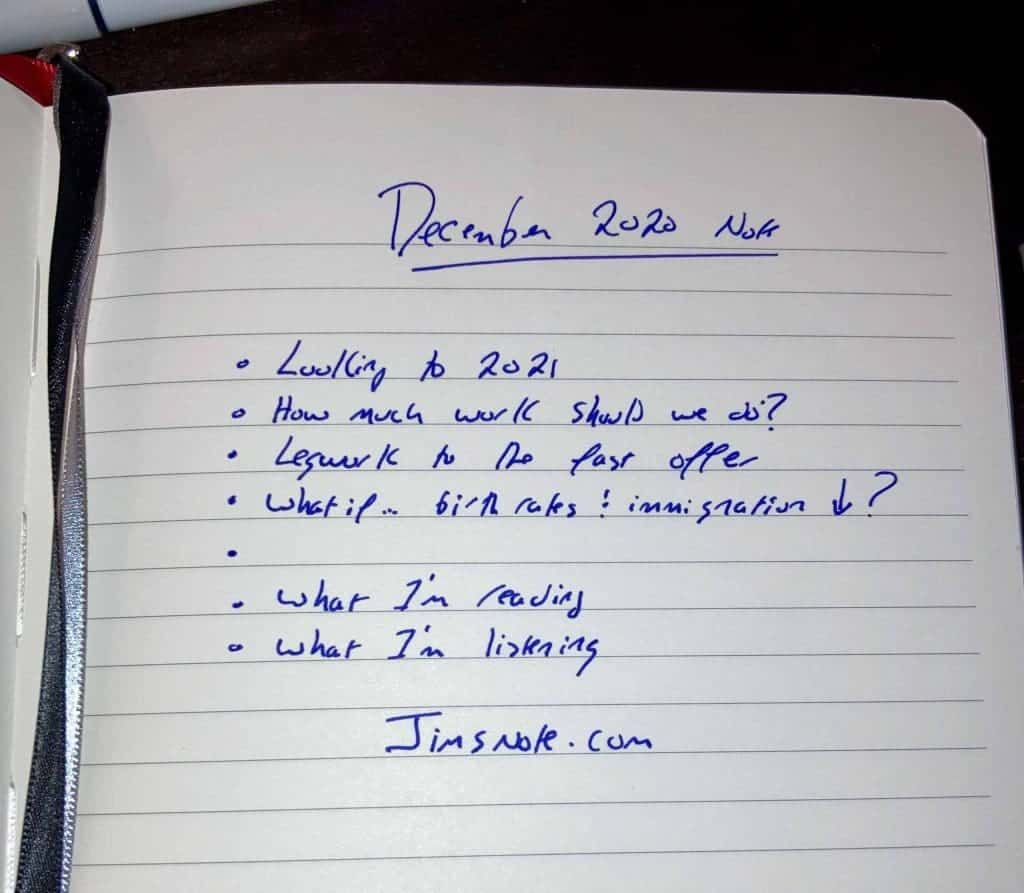 December 2020 Note
• Looking to 2021
• How much work should we do?
• Legwork to the fast offer
• What if... birth rates & immigration ↓?
•
• What I'm reading
• What I'm listening
JimsNote.com